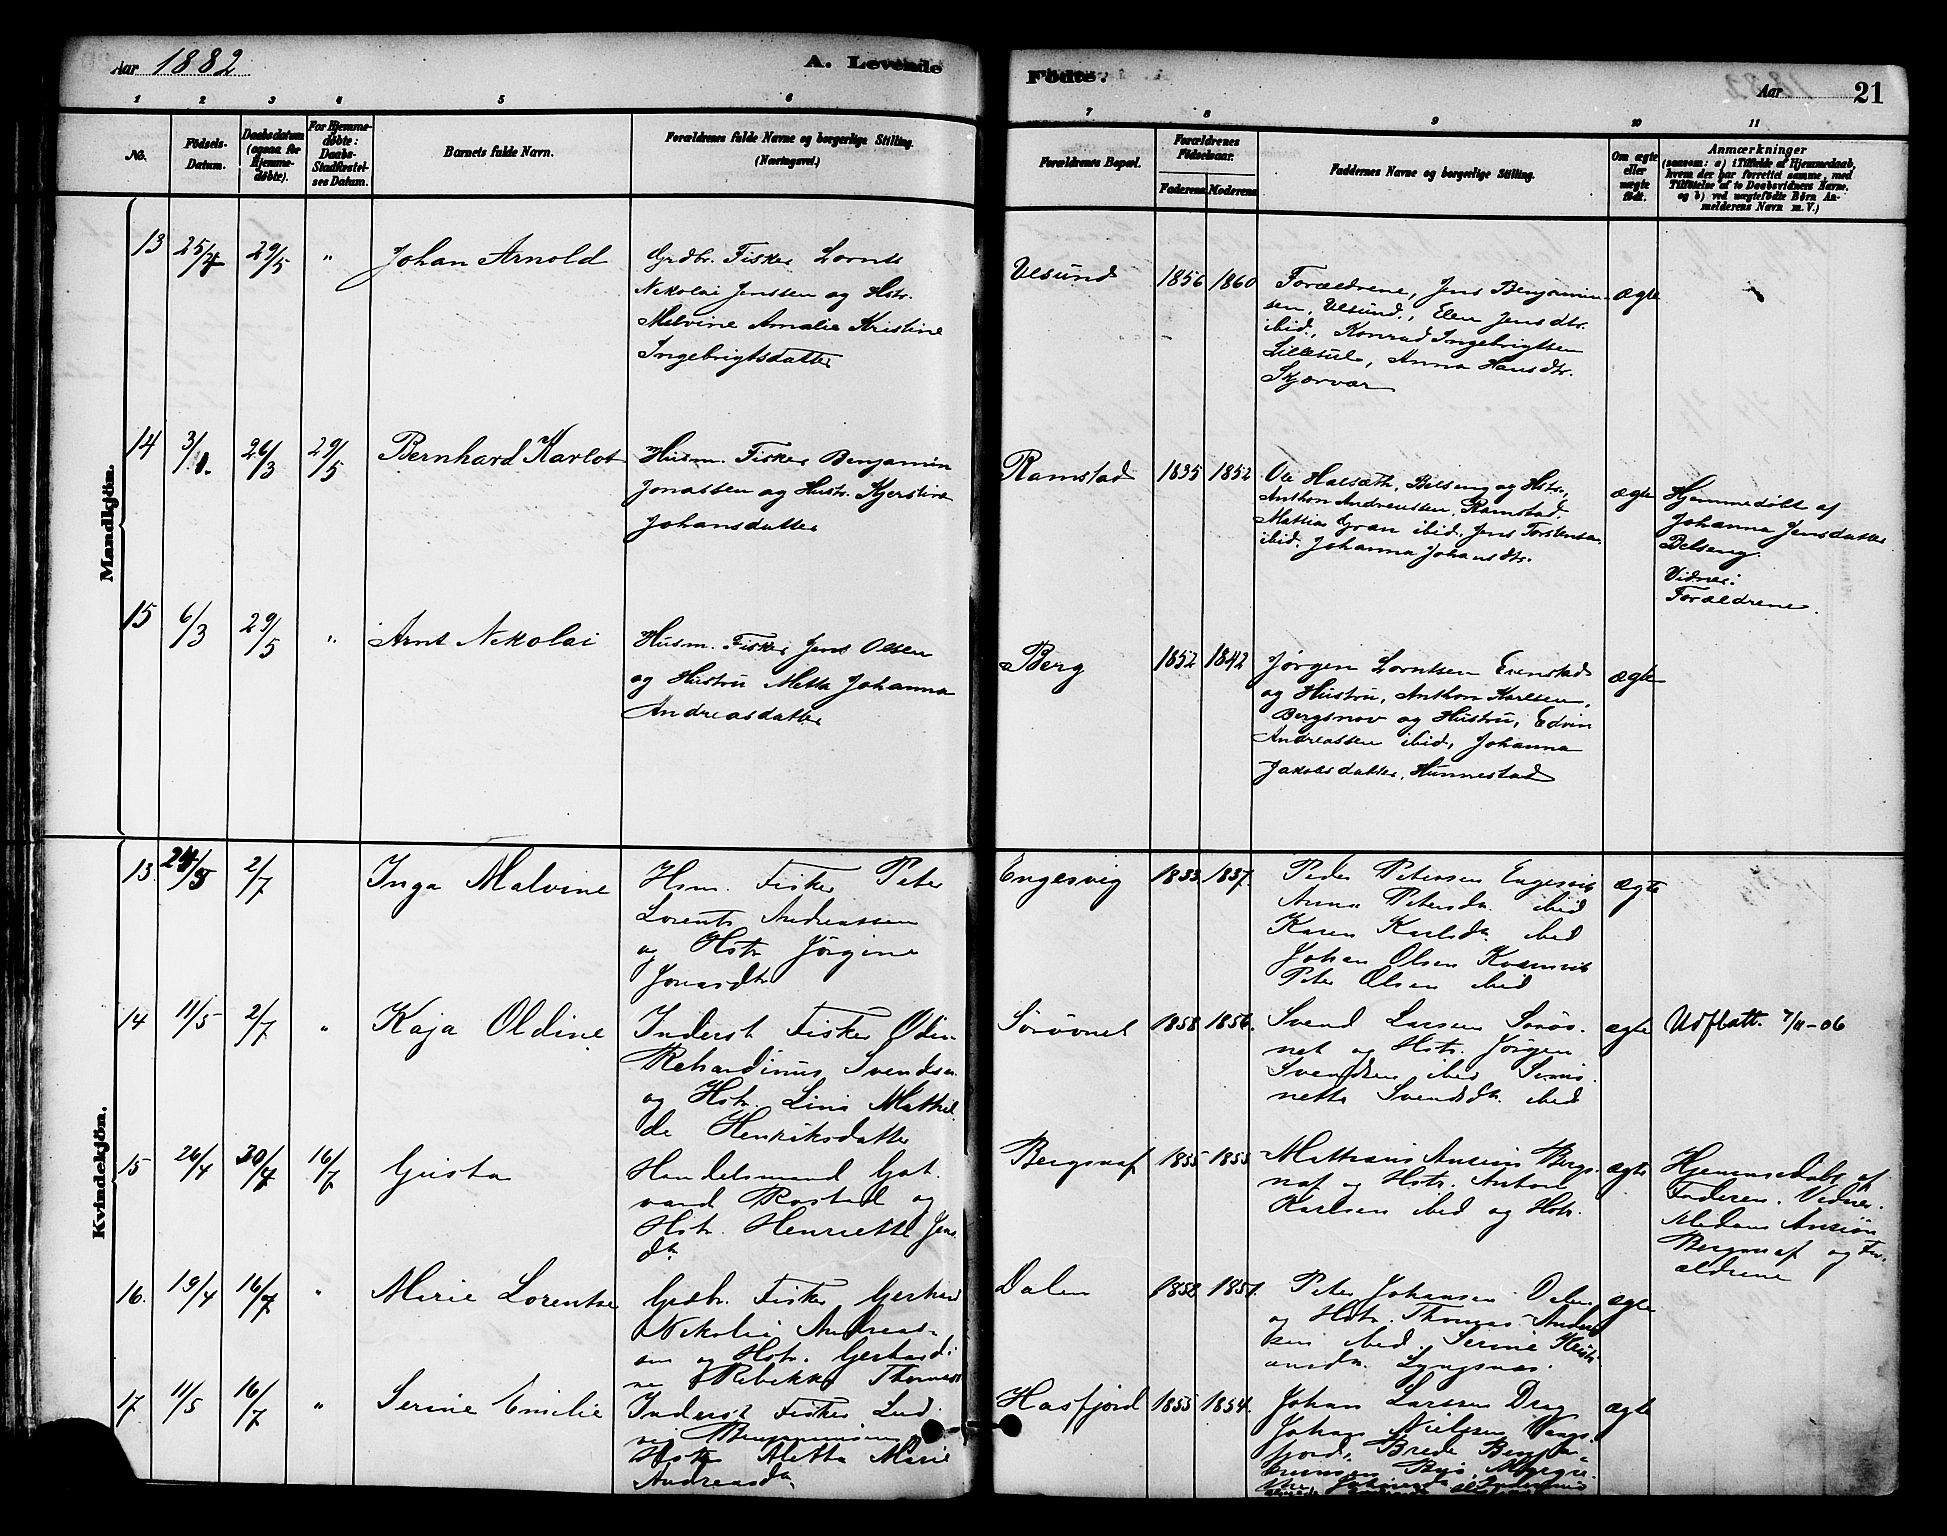 Aar 1882
A. Levende
Fødte.
Aar
21
1
2
3
4
5
6
7
8
9
10
11
No.
Fødsels-
Datum.
Daabsdatum
(ogsaa for
Hjemme-
døbte).
For Hjemme-
døbte:
Daabs-
Stadfæstel-
ses Datum.
Barnets fulde Navn.
Forældrenes fulde Navne og borgerlige Stilling.
(Næringsvei.)
Forældrenes Bopæl.
Forældrenes
Fødselsaar.
Faderens
Moderens
Faddernes Navne og borgerlige Stilling.
Om ægte
eller
uægte
født.
Anmærkninger
(saasom: a) i Tilfælde af Hjemmedaab,
hvem der har forrettet samme, med
Tilføielse af to Daabsvidners Navne.
og b) ved uægtefødte Børn An-
melderens Navn m. V.)
Mandkjön.
13
25/4
29/5
"
Johan Arnold
Grdbr. Fisker Lornts
Nikolai Jenssen og Hstr.
Malvine Amalie Kristine
Ingebrigtsdatter
Ulsund
1856
1860
Forældrene, Jens Benjamin-
sen, Ulsund, Elen Jensdtr.
ibid., Konrad Ingebrigtsen
Lillesul, Anna Hansdtr.
Skjervar
ægte
14
26/3
29/5
Bernhard Karlot
Husm. Fisker Benjamin
Jonassen og Hustr. Kjerstine
Johansdatter
Ramstad
1835
1852
Ole Halsæth, Belseng og Hstr.,
Anthon Andreassen, Ramstad.
Mattias Gran ibid, Jens Torstensen
ibid, Johanna Johansdtr.
ægte
Hjemmedøbt af
Johanna Jensdatter
Belseng.
Vidner:
Forældrene.
15
6/3
29/5
"
Arnt Nikolai
Husm. Fisker Jens Olsen
og Hustru Metta Johanna
Andreasdatter
Berg
1852
1842
Jørgen Lorntsen Evenstad
og Hustru, Anthon Karlsen,
Bergsnov og Hustru, Edvin
Andreassen ibid, Johanna
Jakobsdatter, Hunnestad
ægte
Kvindekjön.
13.
24/5
2/7
Inga Malvine
Hsm. Fisker Peter
Lorents Andreassen
og Hstr Jørgine
Jonasdtr
Engesvig
1853
1857.
Peder Petersen Engesvik
Anna Petersdr. ibid
Karen Karlsdr. ibid
Johan Olsen Kvænvik
Peter Olsen ibid
ægte
14
11/5
2/7
"
Kaja Oldine
Inderst Fisker Odin
Rehardinus Svendsen
og Hstr. Lina Mathil-
de Henriksdatter
Sørøvnet
1858
1856.
Svend Larsen Sørøv-
net og Hstr. Jørgen
Svendsen ibid
netta Svendsdr. ibid
ægte
Udflatt. 7/11-06
15
26/4
30/4
16/7
Gusta
Handelsmand Got
vard Rostad og
Hstr. Henriette Jens
dr.
Bergsnaf
1855
1853.
Mathias Ansion Bergs-
naf og Hstr. Anton
Karlsen ibid og Hstr.
ægte
Hjemmedøbt af
Faderen. Vidner.
Madam Ansion
Bergsnaf og For-
ældrene
16.
19/4
16/7
"
Marie Lorentse
Grdbr. Fisker Gerhard
Nikolai Andreas-
sen og Hstr. Gerhardi-
ne Rebekka Thomasd
Dalen
1858
1857.
Peter Johansen Dalen
og Hstr. Thomas Ander
sen ibid. Serine Kristi
ansdr. Lyngsnæs.
ægte
17
11/5
16/7
"
Serine Emilie
Inderst Fisker Lud
vig Benjaminsen
Hstr Aletta Marie
Andreasdr
Hasfjord
1855
1854.
Johan Larssen Drag
Johan Nielsen Vangs
fjord, Brede Benja-
minsen
ægte